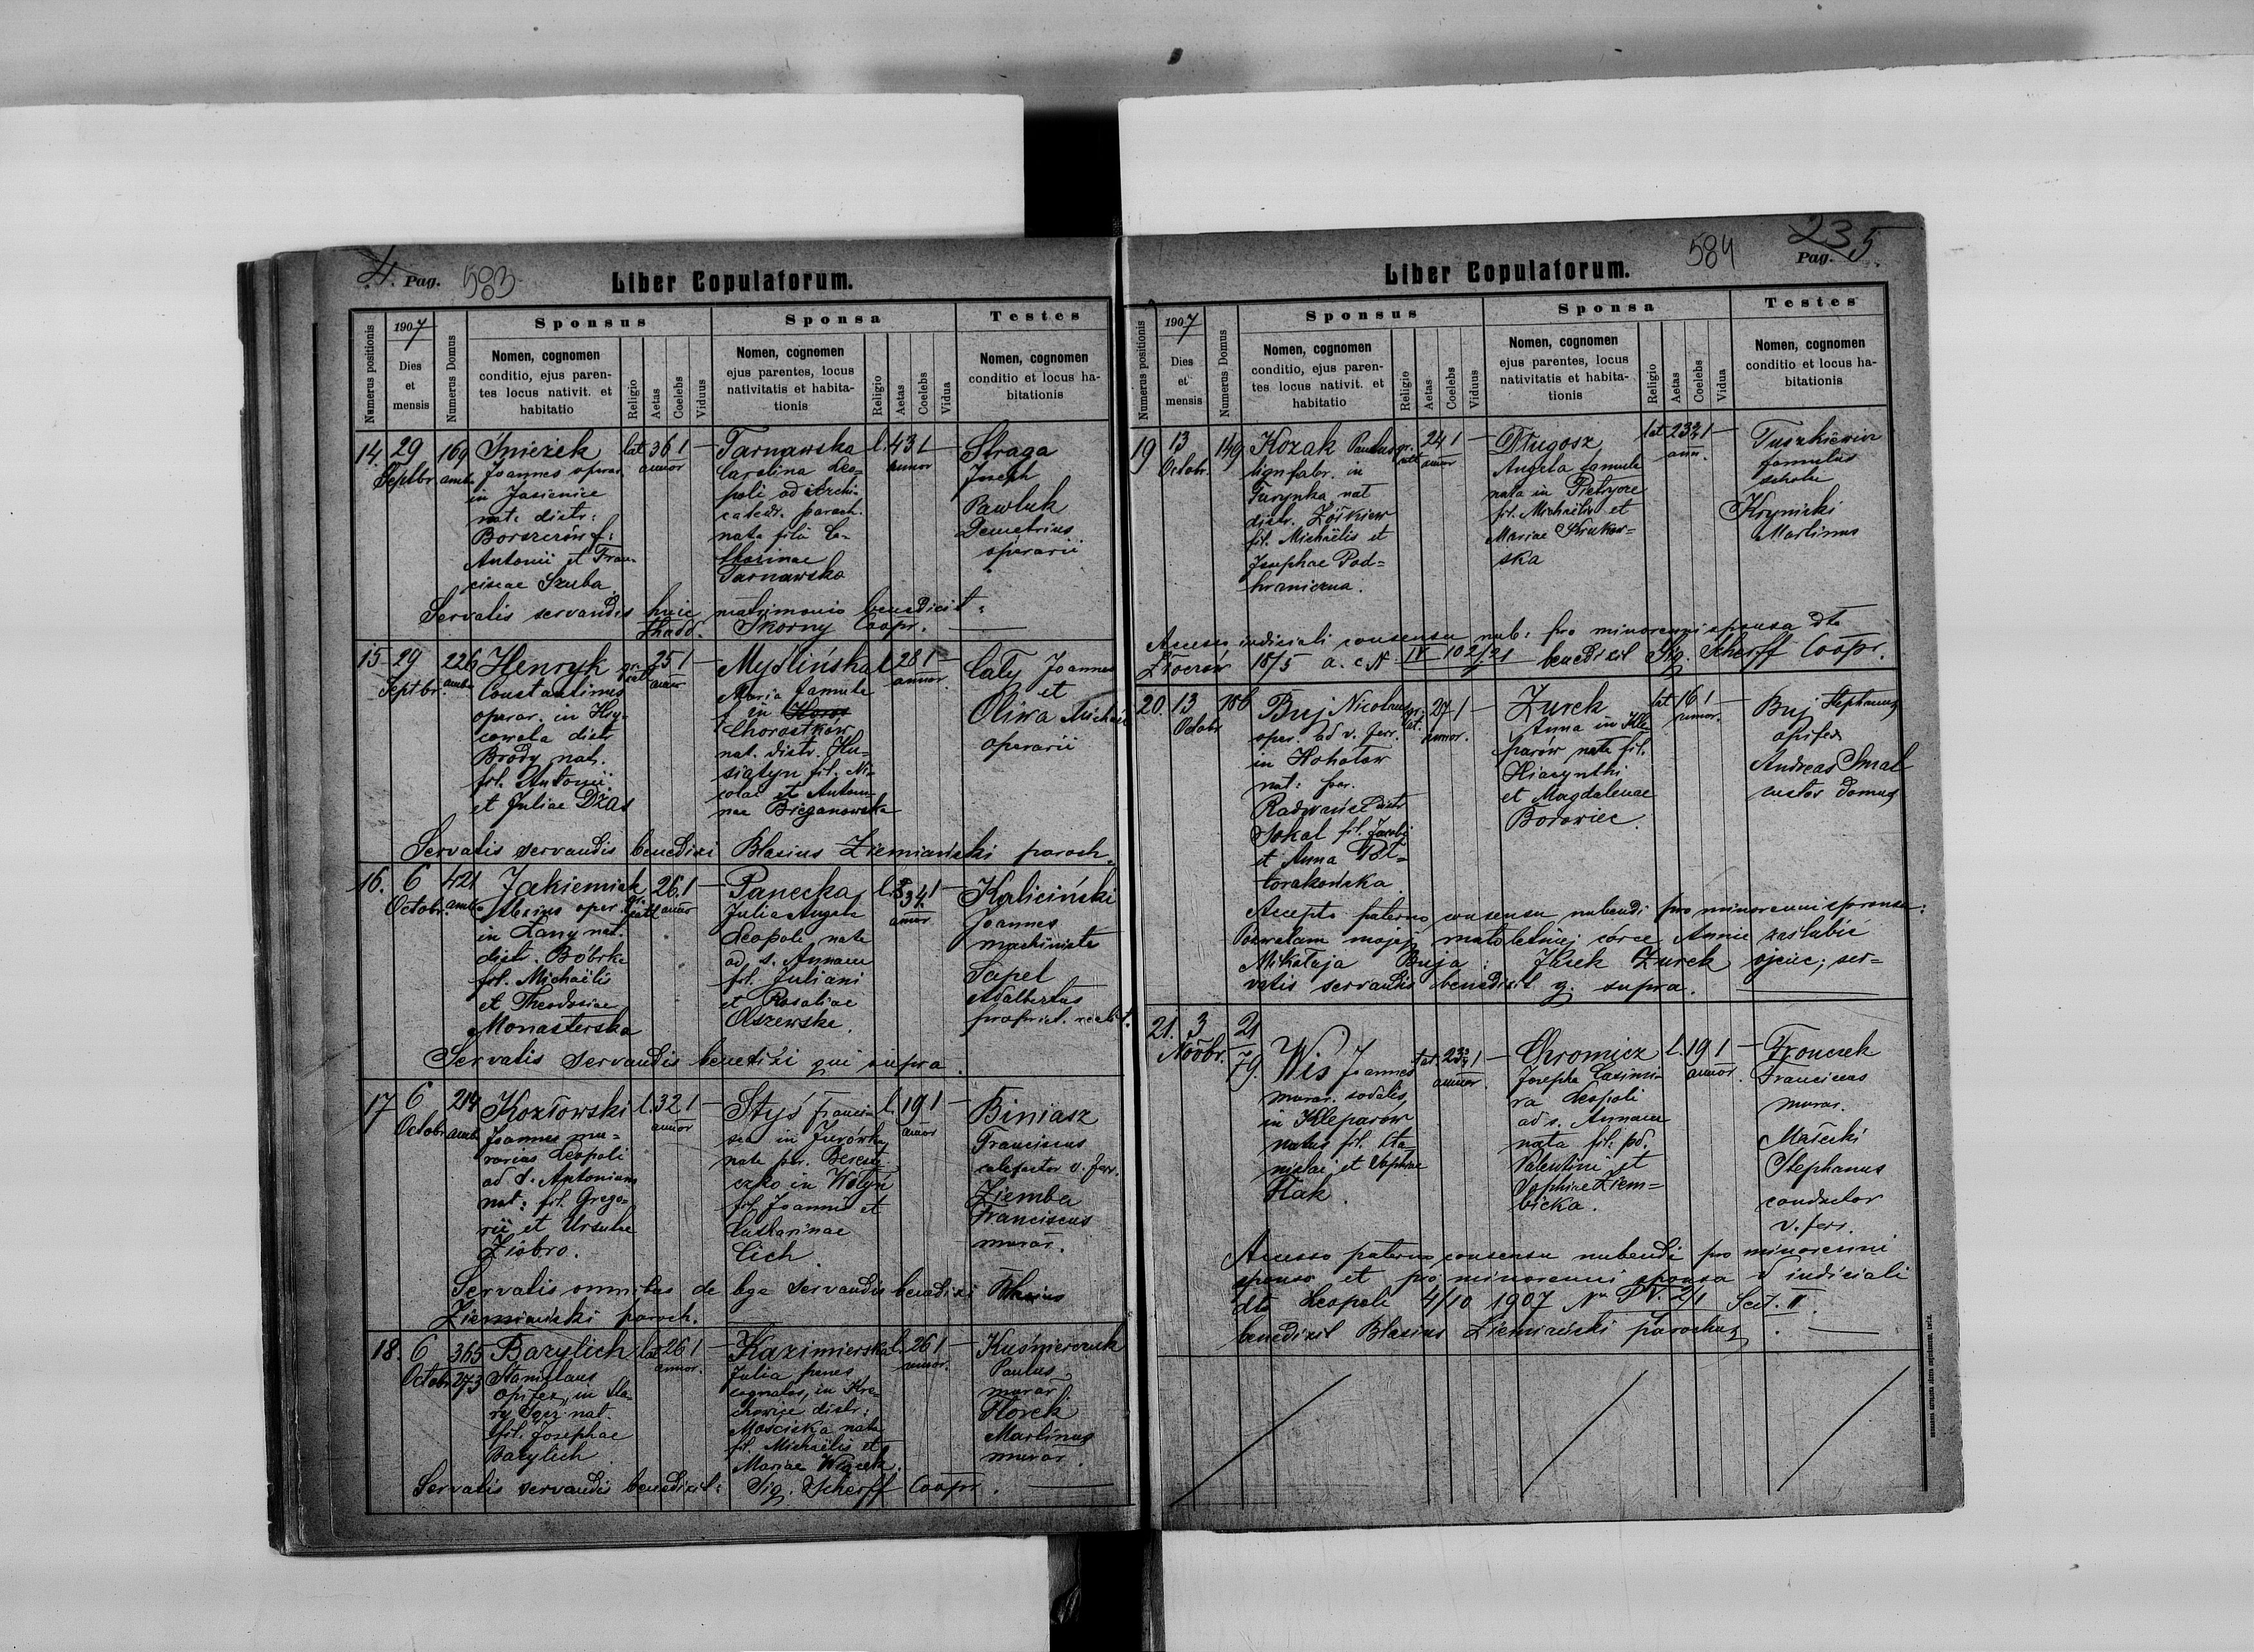 4. Pag. 583
Liber Copulatorum.
Numerus positionis
1907
Dies
et
mensis
Numerus Domus
Sponsus
Nomen, cognomen
conditio, ejus paren-
tes locus nativit. et
habitatio
Religio
Aetas
Coelebs
Viduus
Sponsa
Nomen, cognomen
ejus parentes, locus
nativitatis et habita-
tionis
Religio
Aetas
Coelebs
Vidua
Testes
Nomen, cognomen
conditio et locus ha-
bitationis
14. 29 Septbr. 169 amb.
Śnieżek
Joannes operar.
in Jasienice
nat. distr:
Borszczów f:
Antonii et Fran-
ciscae Szuba
lat. 36 annor 1 —
Tarnawska
Carolina Leo-
poli ad Archi-
catedr. paroch.
nata filia Ca-
tharinae
Tarnawska
l. 43 annor 1 —
Straga
Joseph
Pawluk
Demetrius
operarii
Servatis servandis huic matrimonio benedixit:
Thadd. Skorny Coopr.
15 29 Septbr. 226 amb.
Henryk
Constantinus
operar. in Hry-
cowola distr
Brody nat.
fil. Antonii
et Juliae Dżas
gr. cat 25 annor 1 —
Myślińska
Maria famula
in
Chorostków
nat. distr. Hu-
siatyn fil. Ni-
colai et Anton-
nae Breganowska
l. 28 annor. 1 —
Caty Joannes
et
Oliwa Michael
operarii
Servatis servandis benedixi Blasius Ziemiański paroch.
16. 6 Octobr. 421 amb.
Jakiemiak
Alexius oper.
in Łany nat.
distr. Bóbrka
fil. Michaëlis
et Theodosiae
Monasterska
gr. catt 26 annor 1 —
Panecka
Julia Angela
Leopole nata
ad s. Annam
fil. Juliani
et Rosaliae
Olszewska.
l. 34 annor 1 —
Kaliciński
Joannes
machinista
Sapel
Adalbertus
propriet. realit.
Servatis servandis benedixi qui supra.
17 6 Octobr. 214 amb.
Kozłowski
Joannes mu-
rarius Leopoli
ad S. Antonium
nat: fil. Grego-
rii et Ursulae
Ziobro.
l. 32 annor 1 —
Styś Francis-
ca in Żurówka
nata par. Berest-
eczko in Wołyn
fil. Joannis et
Catharinae
Cich
l. 19 annor 1 —
Biniasz
Franciscus
calefactor v. ferr.
Ziemba
Franciscus
murar.
Servatis omnibus de lege servandis benedixi Blasius
Ziemiański paroch.
18. 6 Octobr 365 273
Bazylich
Stanislaus
opifex in Sta-
re Sącz nat.
fil. Josephae
Bazylich
lat 26 annor. 1 —
Kazimierska
Julia penes
cognatos, in Kre-
chowice distr:
Mościska nata
fil. Michaëlis et
Mariae Wlącek.
l. 26 annor. 1 —
Kuśnierczuk
Paulus
murar.
Florek
Martinus
murar.
Servatis servandis benedixit: Sig. Scherff Coopr.
584 235
Pag.
Liber Copulatorum.
Numerus positionis
1907
Dies
et
mensis
Numerus Domus
Sponsus
Nomen, cognomen
conditio, ejus paren-
tes locus nativit. et
habitatio
Religio
Aetas
Coelebs
Viduus
Sponsa
Nomen, cognomen
ejus parentes, locus
nativitatis et habita-
tionis
Religio
Aetas
Coelebs
Vidua
Testes
Nomen, cognomen
conditio et locus ha-
bitationis
19 13 Octobr. 149
Kozak Paulus
lign. fabr. in
Turynka nat
distr. Żółkiew
fil. Michaëlis et
Josephae Pod-
hraniczna.
gr. catt 24 annor 1 —
Długosz
Angela famula
nata in Pietrycze
fil. Michaëlis et
Mariae Krukow-
ska
lat 23 ann. 1 —
Tuszkiewicz
famulus
scholae
Krynicki
Martinus
Accesso judiciali consensu nub: pro minorenni sponsa dto
Złoczów 18/5 a. c N. IV 102/21 benedixit Sig. Scherff Coopr.
20. 13 Octobr 186
Buj Nicolaus
oper. ad v. ferr.
in Hohotów
nat: par.
Radwańce distr
Sokal fil. Jacobi
et Anna Poł-
torakowska.
gr. cat. 27 annor. 1 —
Żurek
Anna in Kle-
parów nata fil.
Hiacynthi
et Magdalenae
Borowiec.
lat 16 annor. 1 —
Buj Stephanus
opifex
Andreas Smal
custos domus
Accepto paterno consensu nubendi pro minorenni sponsa:
Pozwalam mojej małoletniej córce Annie zaślubić
Mikołaja Buja: Jacek Żurek ojciec; ser-
vatis servandis benedixit q. supra.
21. 3 Novbr. 21 79
Wis Joannes
murar. sodalis
in Kleparów
natus fil. Sta-
nislai et Sophiae
Flak.
lat. 23 annor. 1 —
Chromicz
Josepha Casimi-
ra Leopoli
ad s. Annam
nata fil: pd.
Valentini et
Sophiae Ziem-
bicka.
l. 19 annor. 1 —
Fronczek
Franciscus
murar.
Małecki
Stephanus
conductor
v. ferr.
Accesso paterno consensu nubendi pro minorenni
sponso et pro minorenni sponsa judiciali
dto Leopoli 4/10 1907 No P.V. 2/1 Sect. II.
benedixit Blasius Ziemiański parochus.